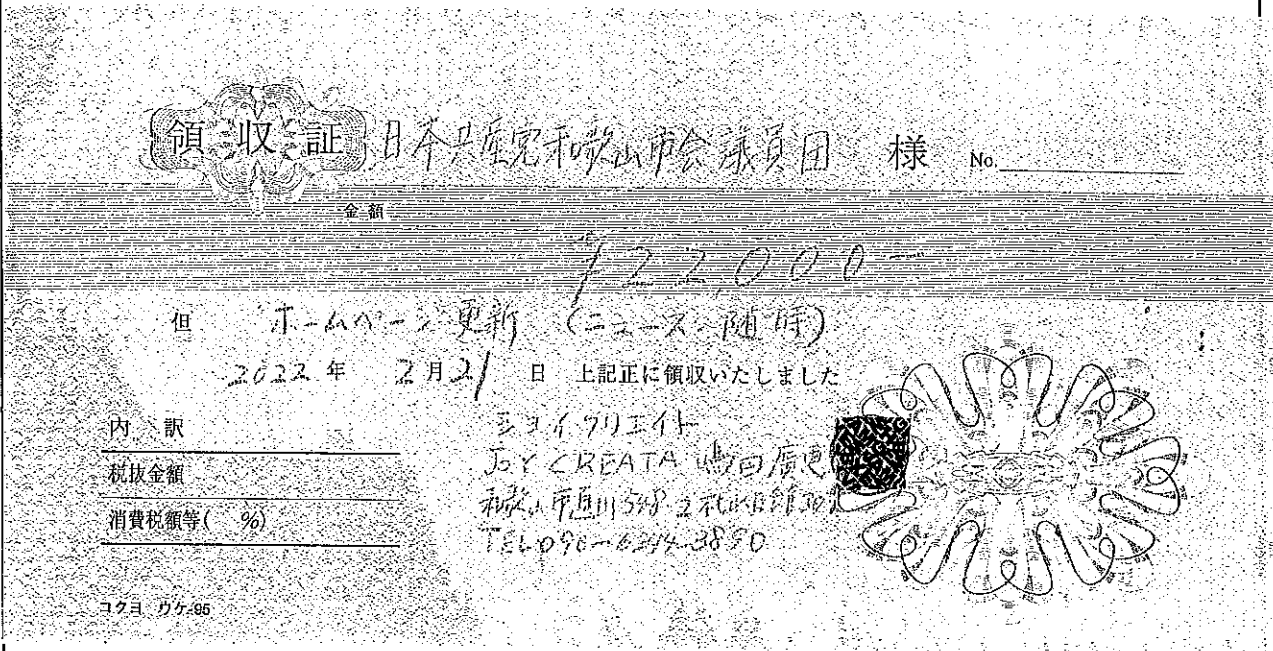 領収証 日本共産党和歌山市会議員団 様 No.
金額
¥22,000-
但 ホームページ更新 (ニュース、随時)
2022年 2月21日 上記正に領収いたしました
内訳
税抜金額
消費税額等( %)
ジョイクリエイト
JOY CREATA 嶋田
和歌山市
TEL 090-6
コクヨ ウケ-95